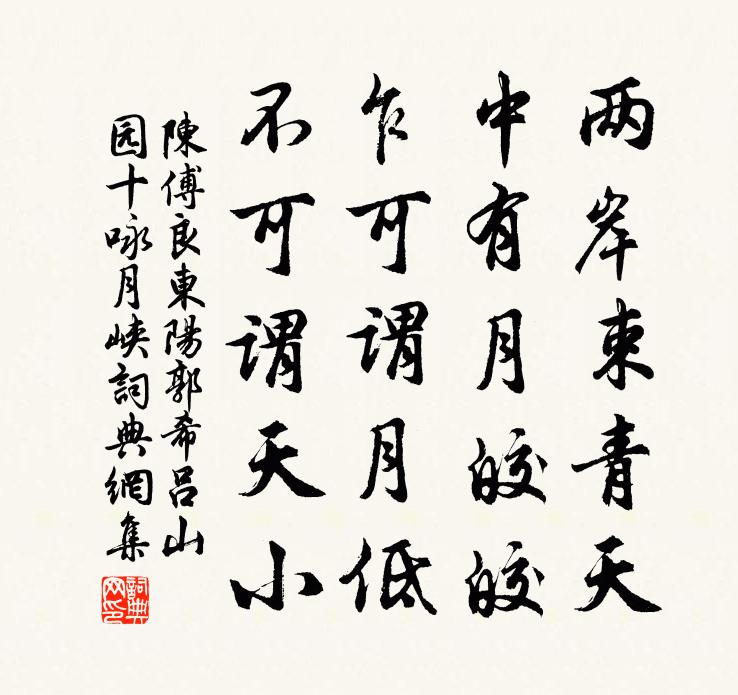 两岸束青天
中有月皎皎
乍可谓月低
不可谓天小
陳傅良東陽郭希呂山
园十咏月峡詞典網集
詞典
网